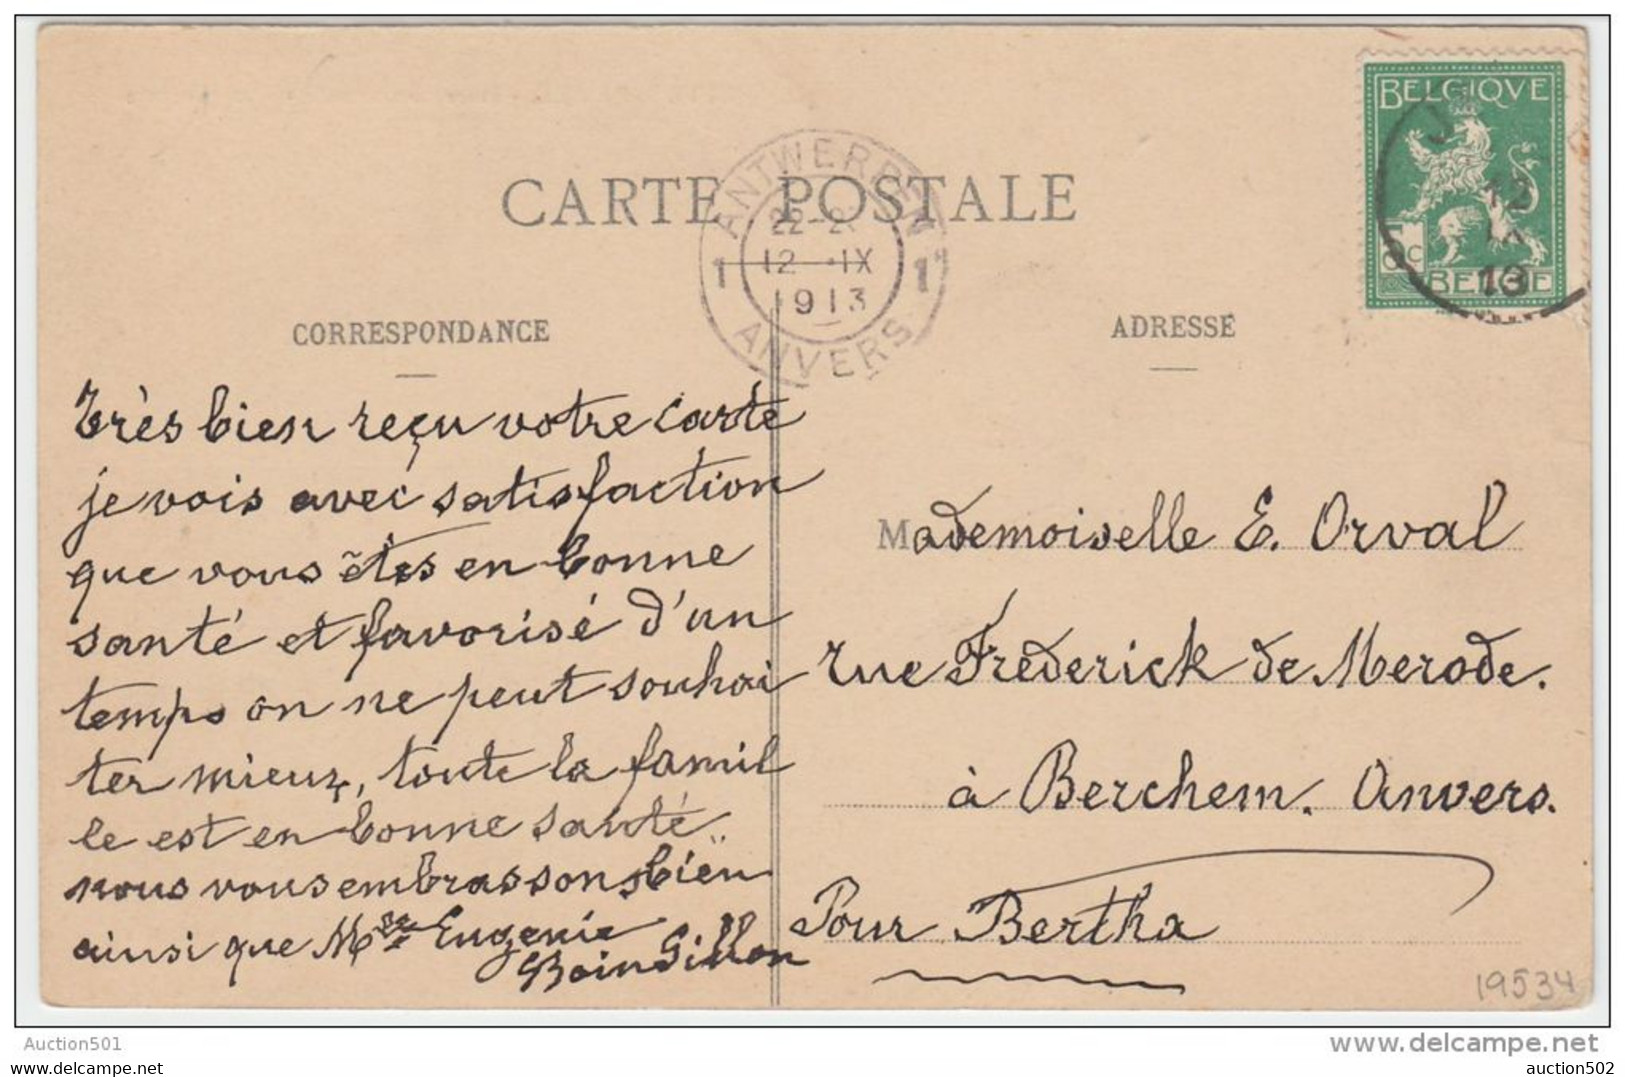 CARTE POSTALE
ANTWERPEN
1 1
22-2
12 IX
1913
ANVERS
BELGIQUE
5c
BELGIË
J
12
IX
13
CORRESPONDANCE
ADRESSE
très bien reçu votre carte
je vois avec satisfaction
que vous êtes en bonne
santé et favorisé d'un
temps on ne peut souhai
ter mieux, toute la famil
le est en bonne santé
nous vous embrassons bien
ainsi que Mlle Eugenie
Gillon
Mademoiselle E. Orval
rue Frederick de Merode.
à Berchem. Anvers.
Pour Bertha
19534
Auction501
www.delcampe.net
auction502